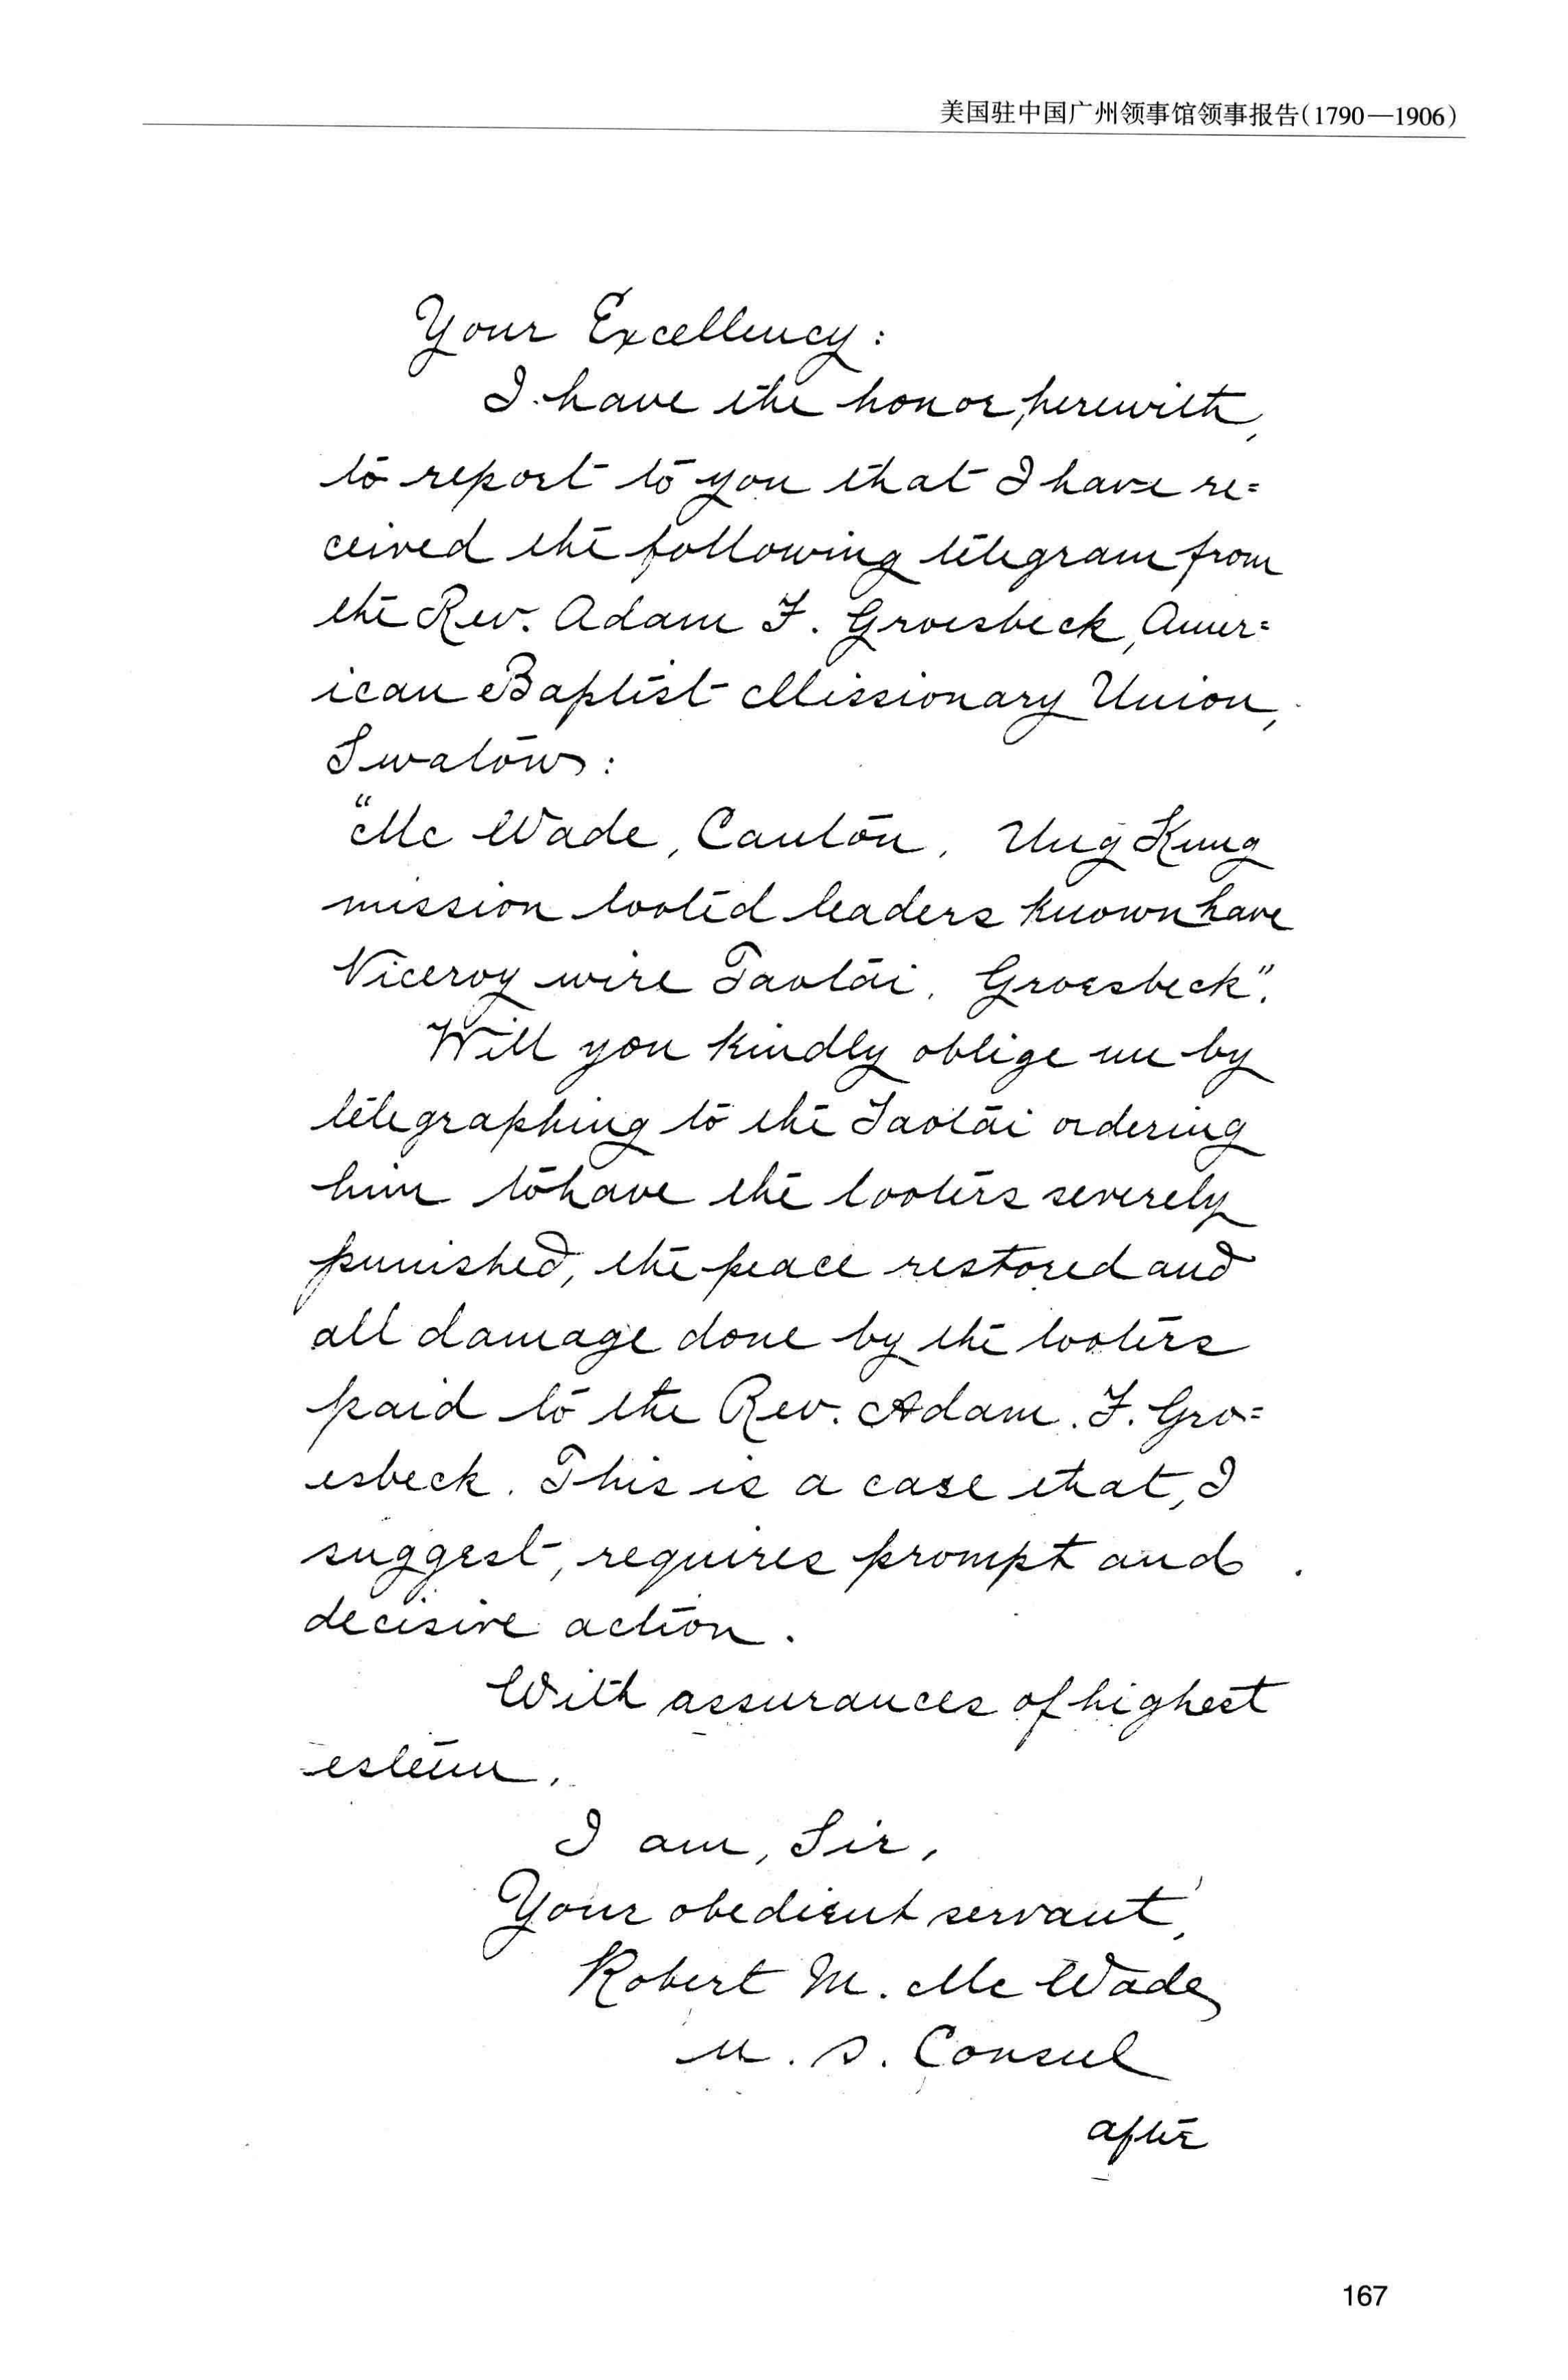 美国驻中国广州领事馆领事报告(1790—1906)
Your Excellency:
I have the honor, herewith,
to report to you that I have re=
ceived the following telegram from
the Rev. Adam F. Groesbeck, Amer=
ican Baptist Missionary Union,
Swatow:
"McWade, Canton, Ung Kung
mission looted leaders known have
Viceroy wire Taotai, Groesbeck".
Will you kindly oblige me by
telegraphing to the Taotai ordering
him to have the looters severely
punished, the peace restored and
all damage done by the looters
paid to the Rev. Adam. F. Gro=
esbeck. This is a case that, I
suggest, requires prompt and
decisive action.
With assurances of highest
esteem,
I am, Sir,
Your obedient servant,
Robert M. McWade
U. S. Consul
after
167